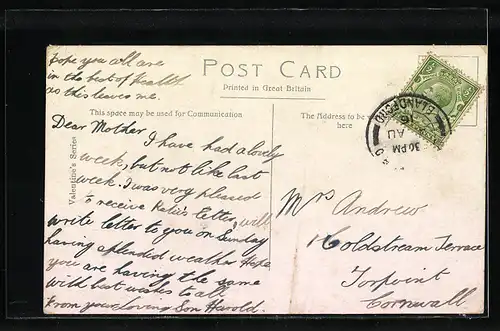 hope you all are
in the best of health
as this leaves me.
POST CARD
Printed in Great Britain
This space may be used for Communication
The Address to be
here
Valentine's Series
BLANDFORD
30 PM
AU
16
Dear Mother
I have had a lovely
week, but not like last
week. I was very pleased
to receive Katie's letter, will
write letter to you on Sunday
having splendid weather Hope
you are having the same
with best wishes to all
From your loving Son Harold.
Mrs Andrew
Coldstream Terrace
Torpoint
Cornwall.